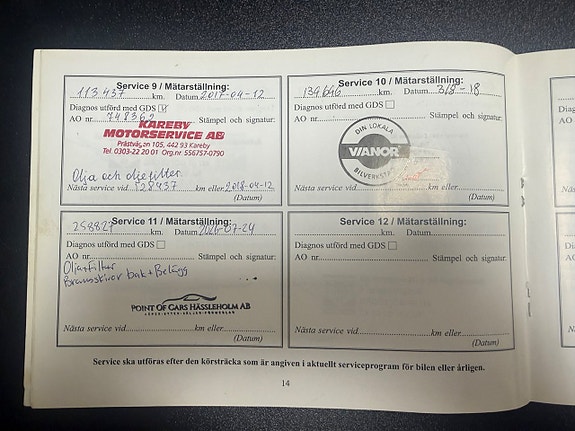 Service 9 / Mätarställning:
113.437 km. Datum 2017-04-12
Diagnos utförd med GDS
AO nr 748362 Stämpel och signatur:
KAREBY
MOTORSERVICE AB
Prästväg. 105, 442 93 Kareby
Tel. 0303-22 20 01 Org.nr 556757-0790
Olja och oljefilter.
Nästa service vid 128437 km eller 2018-04-12
(Datum)
Service 10 / Mätarställning:
134646 km. Datum 3/8-18
Diagnos utförd med GDS
AO nr. Stämpel och signatur:
DIN LOKALA
VIANOR
BILVERKSTAD
Nästa service vid km eller
(Datum)
Service 11 / Mätarställning:
258827 km. Datum 2024-07-24
Diagnos utförd med GDS
AO nr Stämpel och signatur:
Olja+filter
Bromsskivor bak + Belägg
POINT OF CARS HÄSSLEHOLM AB
Nästa service vid km eller
(Datum)
Service 12 / Mätarställning:
km. Datum
Diagnos utförd med GDS
AO nr Stämpel och signatur:
Nästa service vid km eller
(Datum)
Service ska utföras efter den körsträcka som är angiven i aktuellt serviceprogram för bilen eller årligen.
14